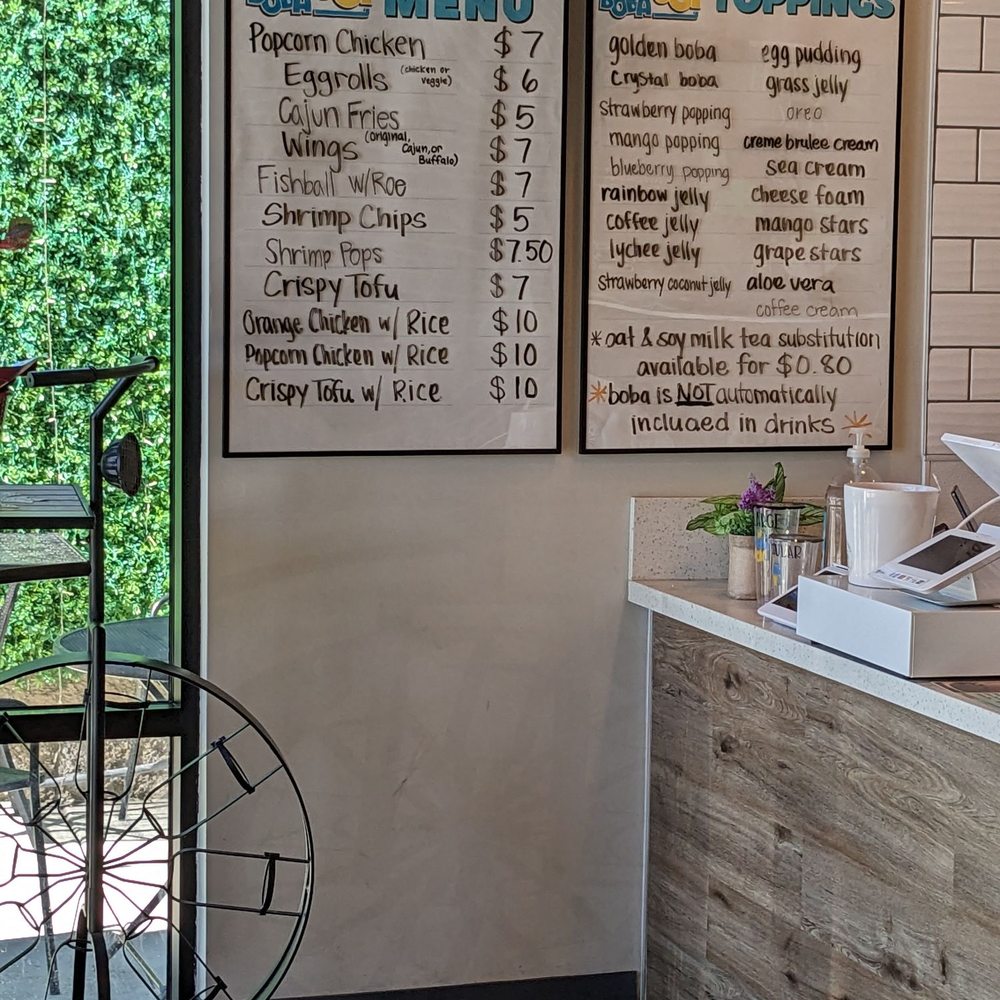 BOBA
MENU
Popcorn Chicken $7
Eggrolls (chicken or veggie) $6
Cajun Fries $5
Wings (original, Cajun, or Buffalo) $7
Fishball w/Roe $7
Shrimp Chips $5
Shrimp Pops $7.50
Crispy Tofu $7
Orange Chicken w/ Rice $10
Popcorn Chicken w/ Rice $10
Crispy Tofu w/ Rice $10
BOBA
TOPPINGS
golden boba
crystal boba
strawberry popping
mango popping
blueberry popping
rainbow jelly
coffee jelly
lychee jelly
strawberry coconut jelly
egg pudding
grass jelly
oreo
creme brulee cream
sea cream
cheese foam
mango stars
grape stars
aloe vera
coffee cream
*oat & soy milk tea substitution
available for $0.80
*boba is NOT automatically
included in drinks*